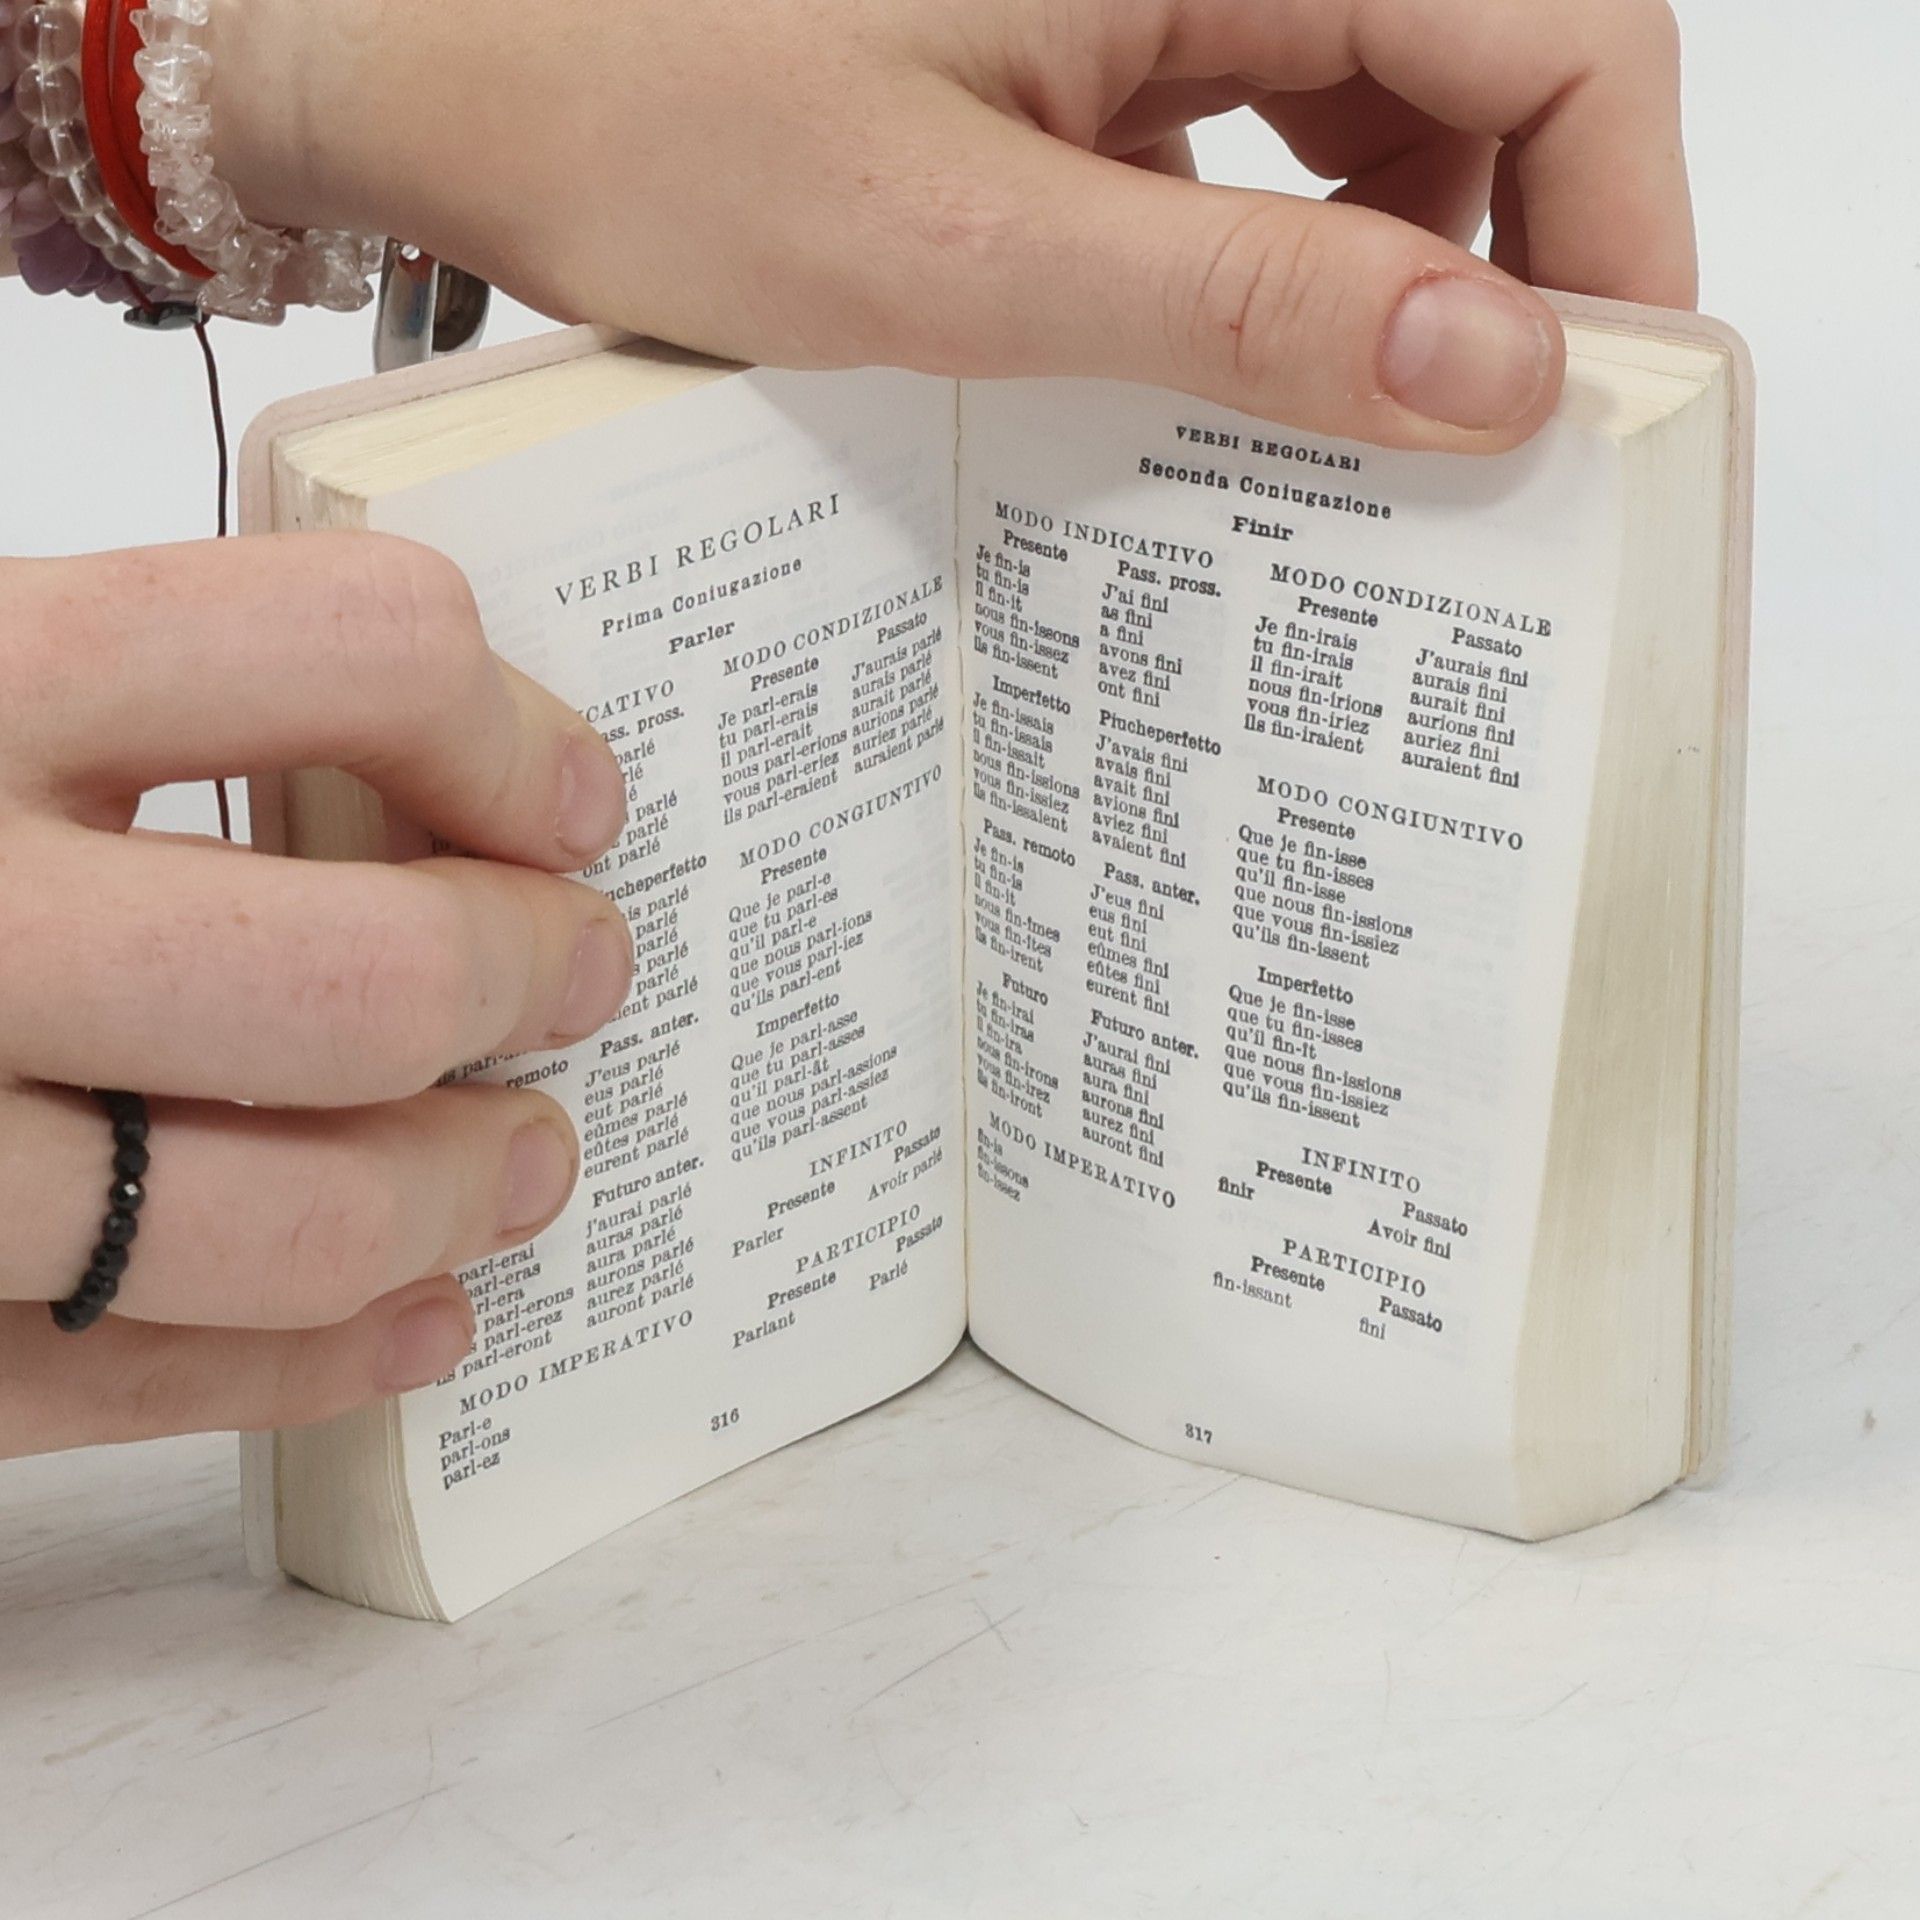 VERBI REGOLARI
Prima Coniugazione
Parler
CATIVO
ass. pross.
parlé
parlé
parlé
ont parlé
ncheperfetto
is parlé
parlé
parlé
s parlé
parlé
ient parlé
remoto
Pass. anter.
J'eus parlé
eus parlé
eut parlé
eûmes parlé
eûtes parlé
eurent parlé
Futuro anter.
parl-erai j'aurai parlé
parl-eras auras parlé
rl-era aura parlé
parl-erons aurons parlé
s parl-erez aurez parlé
parl-eront auront parlé
MODO IMPERATIVO
Parl-e
parl-ons
parl-ez
MODO CONDIZIONALE
Presente Passato
Je parl-erais J'aurais parlé
tu parl-erais aurais parlé
il parl-erait aurait parlé
nous parl-erions aurions parlé
vous parl-eriez auriez parlé
ils parl-eraient auraient parlé
MODO CONGIUNTIVO
Presente
Que je parl-e
que tu parl-es
qu'il parl-e
que nous parl-ions
que vous parl-iez
qu'ils parl-ent
Imperfetto
Que je parl-asse
que tu parl-asses
qu'il parl-ât
que nous parl-assions
que vous parl-assiez
qu'ils parl-assent
INFINITO
Presente Passato
Parler Avoir parlé
PARTICIPIO
Presente Passato
Parlant Parlé
316
VERBI REGOLARI
Seconda Coniugazione
Finir
MODO INDICATIVO
Presente Pass. pross.
Je fin-is J'ai fini
tu fin-is as fini
il fin-it a fini
nous fin-issons avons fini
vous fin-issez avez fini
ils fin-issent ont fini
Imperfetto Piucheperfetto
Je fin-issais J'avais fini
tu fin-issais avais fini
il fin-issait avait fini
nous fin-issions avions fini
vous fin-issiez aviez fini
ils fin-issaient avaient fini
Pass. remoto Pass. anter.
Je fin-is J'eus fini
tu fin-is eus fini
il fin-it eut fini
nous fin-îmes eûmes fini
vous fin-îtes eûtes fini
ils fin-irent eurent fini
Futuro Futuro anter.
Je fin-irai J'aurai fini
tu fin-iras auras fini
il fin-ira aura fini
nous fin-irons aurons fini
vous fin-irez aurez fini
ils fin-iront auront fini
MODO IMPERATIVO
fin-is
fin-issons
fin-issez
MODO CONDIZIONALE
Presente Passato
Je fin-irais J'aurais fini
tu fin-irais aurais fini
il fin-irait aurait fini
nous fin-irions aurions fini
vous fin-iriez auriez fini
ils fin-iraient auraient fini
MODO CONGIUNTIVO
Presente
Que je fin-isse
que tu fin-isses
qu'il fin-isse
que nous fin-issions
que vous fin-issiez
qu'ils fin-issent
Imperfetto
Que je fin-isse
que tu fin-isses
qu'il fin-ît
que nous fin-issions
que vous fin-issiez
qu'ils fin-issent
INFINITO
Presente Passato
finir Avoir fini
PARTICIPIO
Presente Passato
fin-issant fini
317